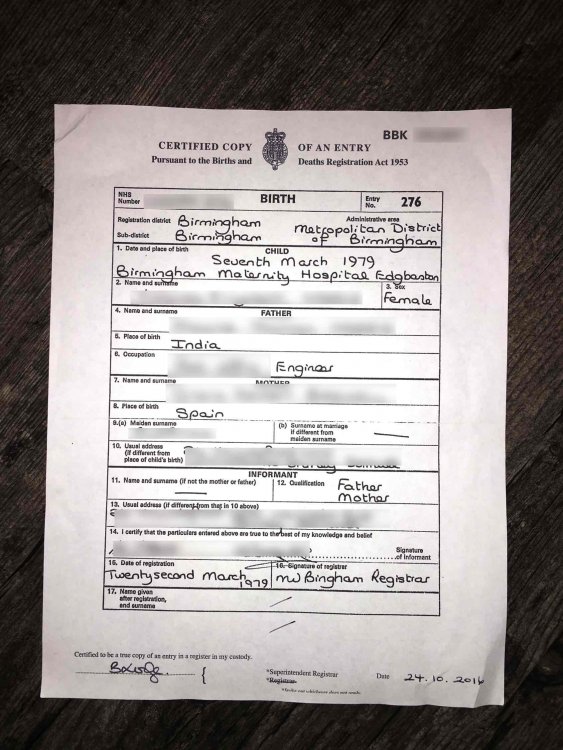 BBK
CERTIFIED COPY OF AN ENTRY
Pursuant to the Births and Deaths Registration Act 1953
NHS Number
BIRTH
Entry No. 276
Registration district Birmingham
Administrative area
Sub-district Birmingham
Metropolitan District of Birmingham
1. Date and place of birth
CHILD
Seventh March 1979
Birmingham Maternity Hospital Edgbaston
2. Name and surname
3. Sex
Female
4. Name and surname
FATHER
5. Place of birth
India
6. Occupation
Engineer
7. Name and surname
MOTHER
8. Place of birth
Spain
9.(a) Maiden surname
(b) Surname at marriage if different from maiden surname
10. Usual address (if different from place of child's birth)
INFORMANT
11. Name and surname (if not the mother or father)
12. Qualification
Father
Mother
13. Usual address (if different from that in 10 above)
14. I certify that the particulars entered above are true to the best of my knowledge and belief
Signature of informant
15. Date of registration
16. Signature of registrar
Twentysecond March 1979
MW Bingham Registrar
17. Name given after registration, and surname
Certified to be a true copy of an entry in a register in my custody.
*Superintendent Registrar
*Registrar
Date 24.10.2016
*Strike out whichever does not apply